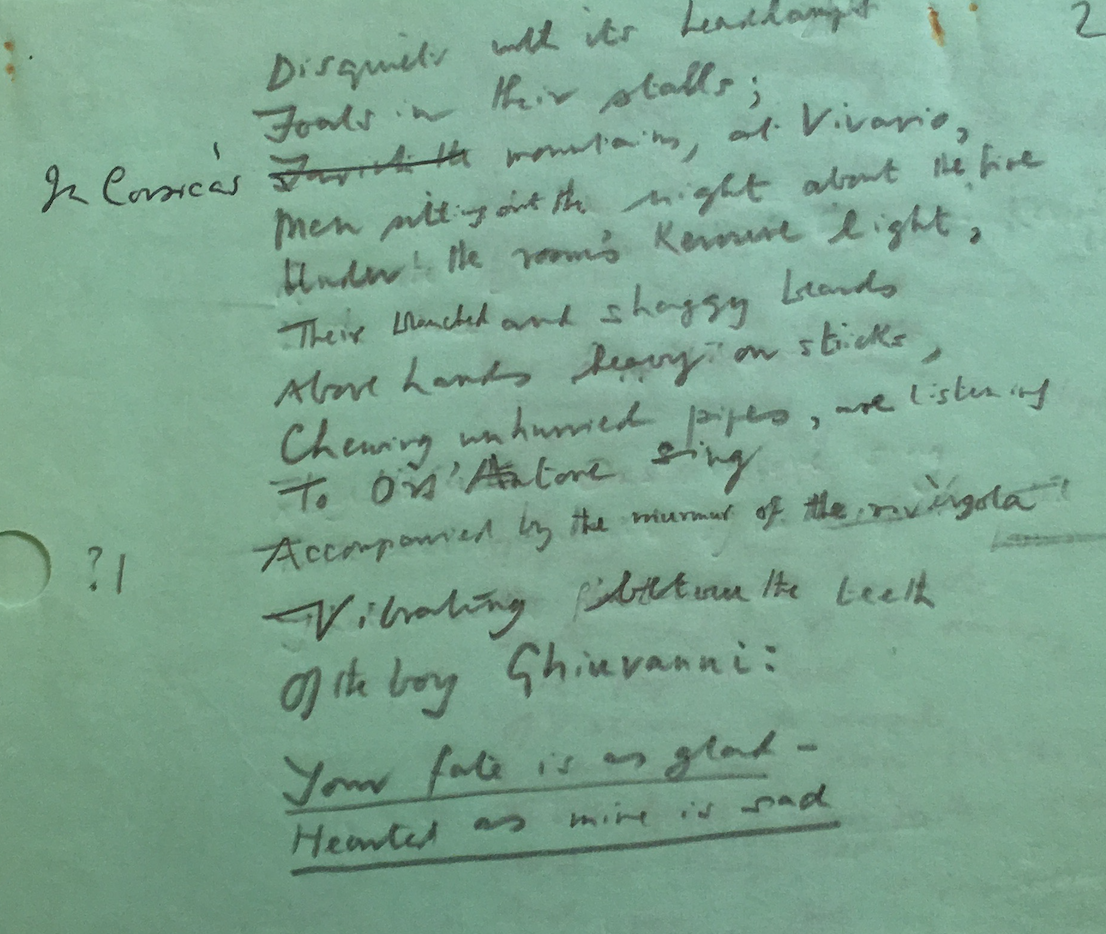 2
Disquiets with its headlamps
Foals in their stalls;
In Corsica's mountains, at Vivario,
Men sitting out the night about the fire
Under the room's kerosene light,
Their and shaggy beards
Above hands heavy on sticks,
Chewing unhurried pipes, are listening
To Ors' Antone sing
Accompanied by the murmur of the rivergola
?1
Vibrating between the teeth
Of the boy Ghiuvanni:
Your fate is as glad-
Hearted as mine is sad